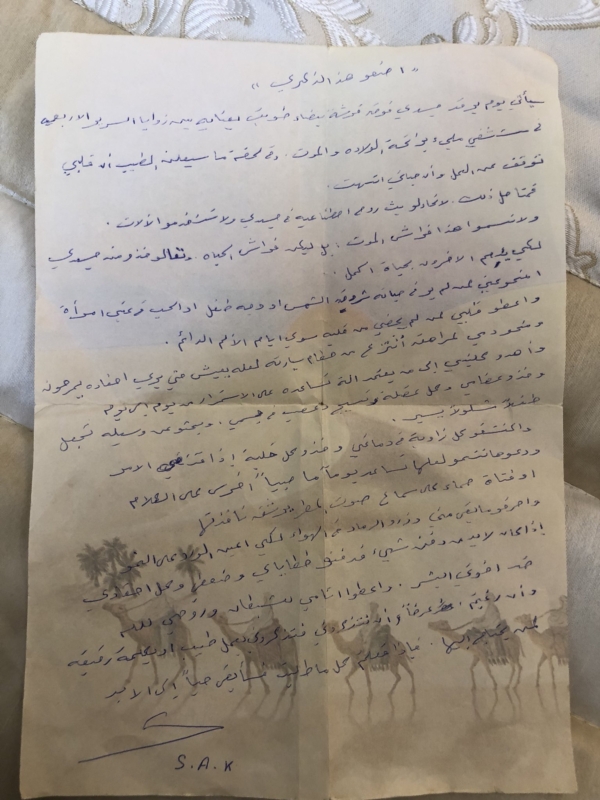 " اصنعو هذا لذكري "
سيأتي يوم يرقد جسدي فوق فرشة بيضاء طويت بعنايه بين زوايا السرير الاربعه
في مستشفي مليء بواقعة الولاده والموت . وفي لحظة ما سيعلن الطبيب أن قلبي
توقف عن العمل وأن حياتي انتهت .
فمتا حل ذلك لا تحاولو بث روح اصطناعيه في جسدي ولا تستخدمو الآلات .
ولا تسمو هذا فراش الموت . بل ليكن فراش الحياه وتعالو خذو منه جسدي
لكي الاخرون بحياة اكمل .
امنحو عيني لمن لم يرى شروق الشمس او وجه طفل او الحب في عيني امرأة
واعطو قلبي لمن لم يجني من قلبه سوي ايام الألم الدائم .
ومنحو دمي لمراهق أنتزع من حطام سيارته لعله يعيش حتي يري احفاده يمرحون
وأهدو كليتي إلى من يعتمد الة تساعده على الاستمرار من يوم إلى يوم
وخذو عظامي وكل عضلة ونسيج وعصب في جسمي . وبحثو عن وسيله تجعل
طفلاً مشلولاً يسير .
واكتشفو كل زاوية في دماغي وخذو كل خلية إذا اقتضي الامر
ودعوها تنمو لعلها تساعد يوماً ما صبياً أخرس على الكلام
او فتاة صماء على سماع صوت المطر يرشق نافذتها
واحرقو ما بقي مني وذرو الرماد في الهواء لكي اعين الورود على النمو
إذا كان لابد من دفن شيء، فدفنو خطاياي وضعفي وكل احقادي
ضد اخوتي البشر . واعطوا اثامي للشيطان وروحي لله
وأن رغبتم وأن تتذكروني فتذكروني بعمل طيب او بكلمة رقيقة
لمن يحتاج إليها . فإذا فعلتم كل ما طلبت سأبقى حياً إلى الابد
S.A.K